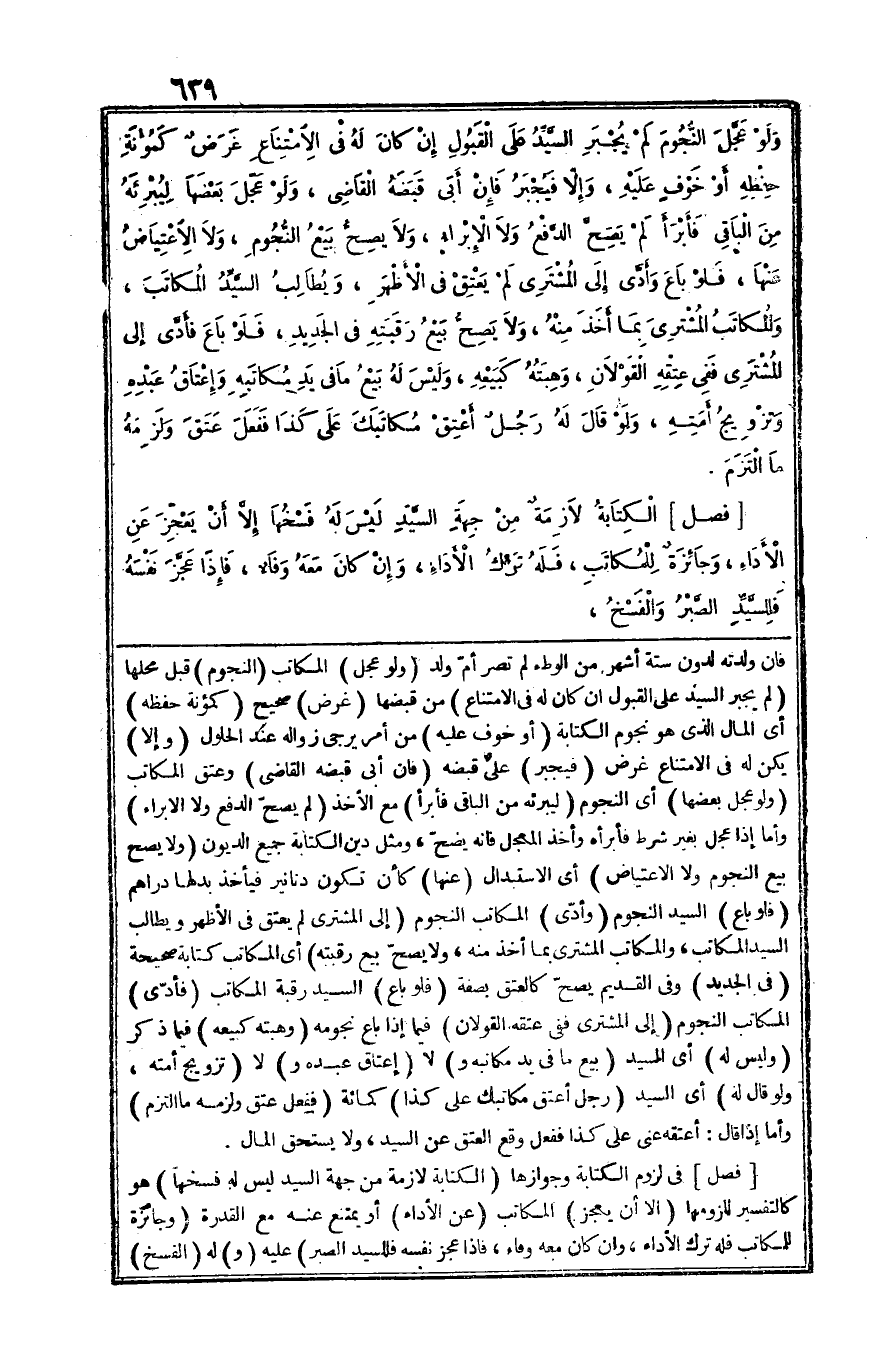 ٦٣٩
وَلَوْ عَجَّلَ النُّجُومَ لَمْ يُجْبَرِ السَّيِّدُ عَلَى الْقَبُولِ إِنْ كَانَ لَهُ فِى الِامْتِنَاعِ غَرَضٌ كَمُؤْنَةِ
حِفْظِهِ أَوْ خَوْفٍ عَلَيْهِ ، وَإِلَّا فَيُجْبَرُ فَإِنْ أَبَى قَبَضَهُ الْقَاضِى ، وَلَوْ عَجَّلَ بَعْضَهَا لِيُبْرِئَهُ
مِنَ الْبَاقِى فَأَبْرَأَ لَمْ يَصِحَّ الدَّفْعُ وَلَا الْإِبْرَاءُ ، وَلَا يَصِحُّ بَيْعُ النُّجُومِ ، وَلَا الِاعْتِيَاضُ
عَنْهَا ، فَلَوْ بَاعَ وَأَدَّى إِلَى الْمُشْتَرِى لَمْ يَعْتِقْ فِى الْأَظْهَرِ ، وَيُطَالِبُ السَّيِّدُ الْمُكَاتَبَ ،
وَالْمُكَاتَبُ الْمُشْتَرِىَ بِمَا أَخَذَ مِنْهُ ، وَلَا يَصِحُّ بَيْعُ رَقَبَتِهِ فِى الْجَدِيدِ ، فَلَوْ بَاعَ فَأَدَّى إِلَى
الْمُشْتَرِى فَفِى عِتْقِهِ الْقَوْلَانِ ، وَهِبَتُهُ كَبَيْعِهِ ، وَلَيْسَ لَهُ بَيْعُ مَا فِى يَدِ مُكَاتَبِهِ وَإِعْتَاقُ عَبْدِهِ
وَتَزْوِيجُ أَمَتِهِ ، وَلَوْ قَالَ لَهُ رَجُلٌ أَعْتِقْ مُكَاتَبَكَ عَلَى كَذَا فَفَعَلَ عَتَقَ وَلَزِمَهُ
مَا الْتَزَمَ .
[ فصل ] الْكِتَابَةُ لَازِمَةٌ مِنْ جِهَةِ السَّيِّدِ لَيْسَ لَهُ فَسْخُهَا إِلَّا أَنْ يَعْجِزَ عَنِ
الْأَدَاءِ ، وَجَائِزَةٌ لِلْمُكَاتَبِ ، فَلَهُ تَرْكُ الْأَدَاءِ ، وَإِنْ كَانَ مَعَهُ وَفَاءٌ ، فَإِذَا عَجَّزَ نَفْسَهُ
فَلِلسَّيِّدِ الصَّبْرُ وَالْفَسْخُ ،
فان ولدته لدون ستة أشهر من الوطء لم تصر أمّ ولد ( ولو عجل ) المكاتب ( النجوم ) قبل محلها
( لم يجبر السيد على القبول ان كان له فى الامتناع ) من قبضها ( غرض ) صحيح ( كمؤنة حفظه )
أى المال الذى هو نجوم الكتابة ( أو خوف عليه ) من أمر يرجى زواله عند الحلول ( وإلا )
يكن له فى الامتناع غرض ( فيجبر ) على قبضه ( فان أبى قبضه القاضى ) وعتق المكاتب
( ولو عجل بعضها ) أى النجوم ( ليبرئه من الباقى فأبرأ ) مع الأخذ ( لم يصحّ الدفع ولا الابراء )
وأما إذا عجل بغير شرط فأبرأه وأخذ المعجل فانه يصحّ ، ومثل دين الكتابة جميع الديون ( ولا يصح
بيع النجوم ولا الاعتياض ) أى الاستبدال ( عنها ) كأن تكون دنانير فيأخذ بدلها دراهم
( فلو باع ) السيد النجوم ( وأدّى ) المكاتب النجوم ( إلى المشترى لم يعتق فى الأظهر ويطالب
السيد المكاتب ، والمكاتب المشترى بما أخذ منه ، ولا يصحّ بيع رقبته ) أى المكاتب كتابة صحيحة
( فى الجديد ) وفى القديم يصحّ كالعتق بصفة ( فلو باع ) السيد رقبة المكاتب ( فأدّى )
المكاتب النجوم ( إلى المشترى ففى عتقه القولان ) فيما إذا باع نجومه ( وهبته كبيعه ) فيما ذكر
( وليس له ) أى السيد ( بيع ما فى يد مكاتبه و ) لا ( إعتاق عبده و ) لا ( تزويج أمته ،
ولو قال له ) أى السيد ( رجل أعتق مكاتبك على كذا ) كمائة ( ففعل عتق ولزمه ما التزم )
وأما إذا قال : أعتقه عنى على كذا ففعل وقع العتق عن السيد ، ولا يستحق المال .
[ فصل ] فى لزوم الكتابة وجوازها ( الكتابة لازمة من جهة السيد ليس له فسخها ) هو
كالتفسير للزومها ( الا أن يعجز ) المكاتب ( عن الأداء ) أو يمتنع عنه مع القدرة ( وجائزة
للمكاتب فله ترك الأداء ، وان كان معه وفاء ، فاذا عجز نفسه فللسيد الصبر ) عليه ( و ) له ( الفسخ )